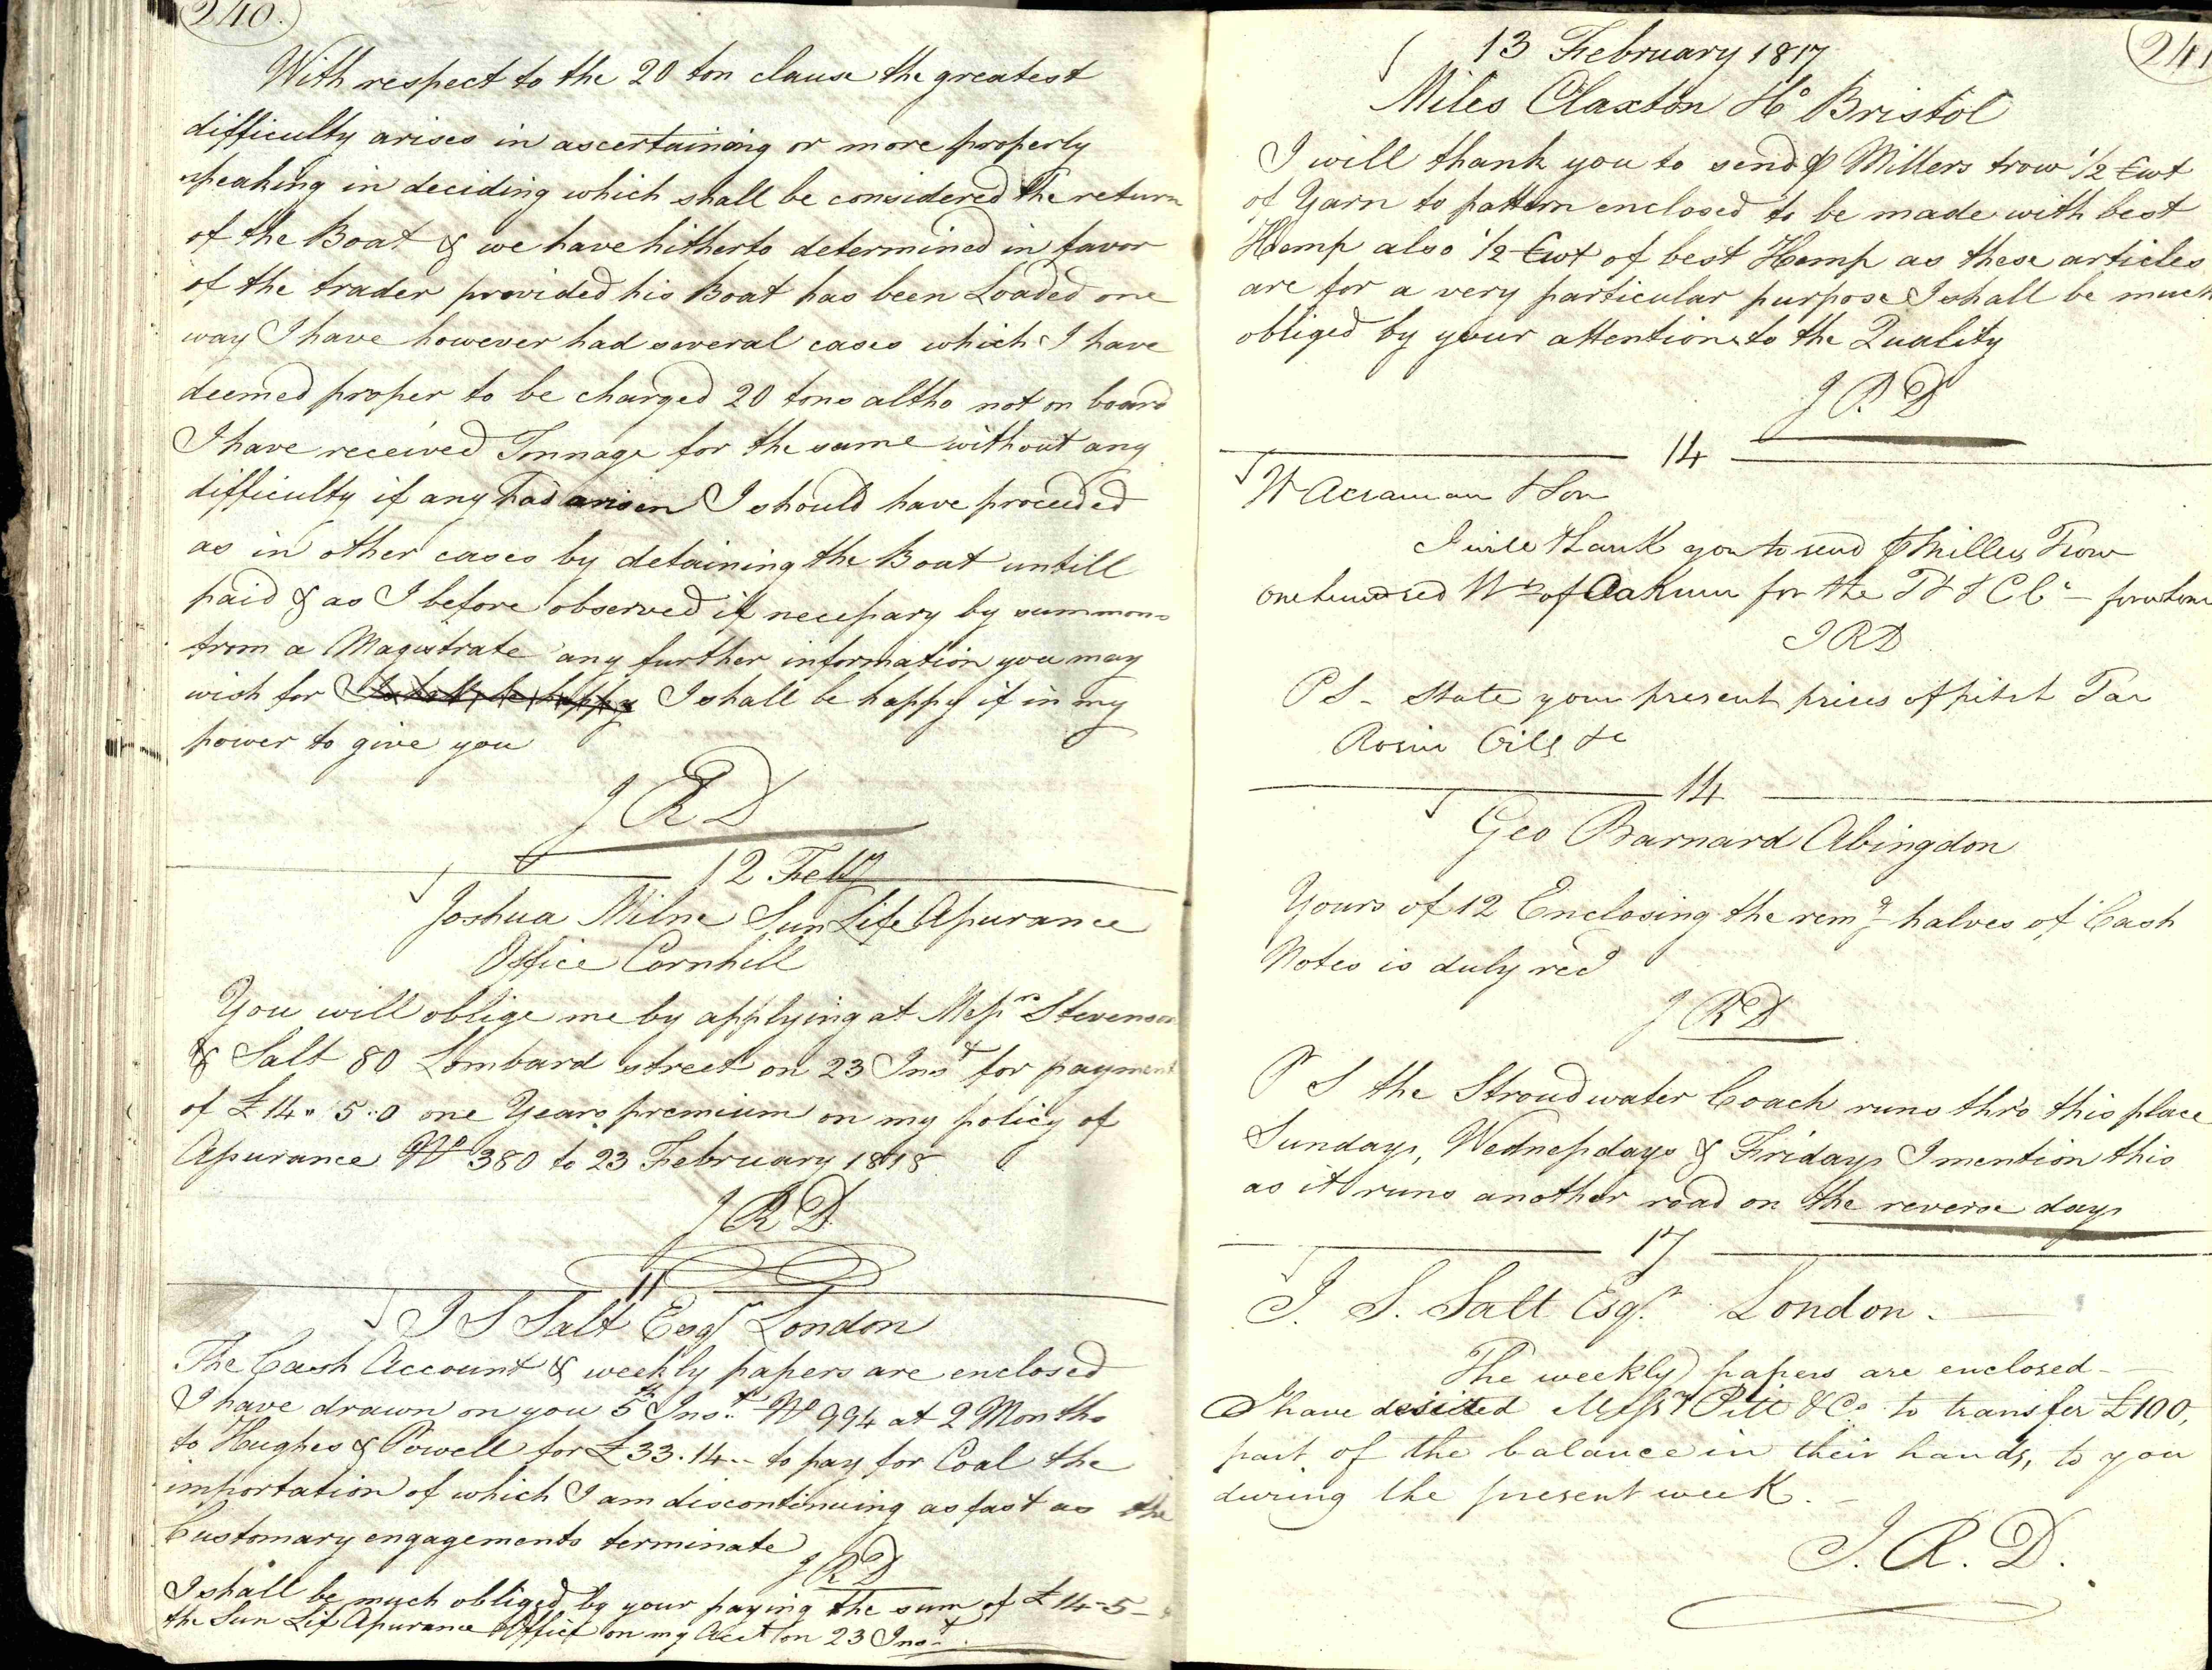 240.
With respect to the 20 ton clause the greatest
difficulty arises in ascertaining or more properly
speaking in deciding which shall be considered the return
of the Boat & we have hitherto determined in favor
of the trader provided his Boat has been Loaded one
way I have however had several cases which I have
deemed proper to be charged 20 tons altho not on board
I have received Tonnage for the same without any
difficulty if any had arisen I should have proceeded
as in other cases by detaining the Boat untill
paid & as I before observed if necessary by summons
from a Magistrate any further information you may
wish for I shall be happy I shall be happy if in my
power to give you
J R D
12 Feby
Joshua Milne Sun Life Assurance
Office Cornhill
You will oblige me by applying at Messrs Stevenson
& Salt 80 Lombard street on 23 Inst for payment
of £14..5..0 one Years premium on my policy of
Assurance No 380 to 23 February 1818
J R D
11
J S Salt Esqr London
The Cash Account & weekly papers are enclosed
I have drawn on you 5th Inst No 994 at 2 Months
to Hughes & Powell for £33.14.- to pay for Coal the
importation of which I am discontinuing as fast as the
Customary engagements terminate
J R D
I shall be much obliged by your paying the sum of £14-5-
the Sun Life Assurance Office on my Acct on 23 Inst
241
13 February 1817
Miles Claxton Ho Bristol
I will thank you to send ⅌ Millers trow 1/2 Cwt
of Yarn to pattern enclosed to be made with best
Hemp also 1/2 Cwt of best Hemp as these articles
are for a very particular purpose I shall be much
obliged by your attention to the Quality
J R D
14
W Acraman & Son
I will thank you to send ⅌ Millers Trow
one hundred Wt of Oakum for the T & S C Co -
J R D
P S - State your present prices of pitch Tar
Rosin Oils &c
14
Geo Barnard Abingdon
Yours of 12 Enclosing the remg halves of Cash
Notes is duly recd
J R D
P S the Stroudwater Coach runs thro this place
Sundays, Wednessdays & Fridays I mention this
as it runs another road on the reverse days
17
J. S. Salt Esqr. London.
The weekly papers are enclosed -
I have desired Messrs Pitt & Co. to transfer £100,
part of the balance in their hands, to you
during the present week. -
J. R. D.